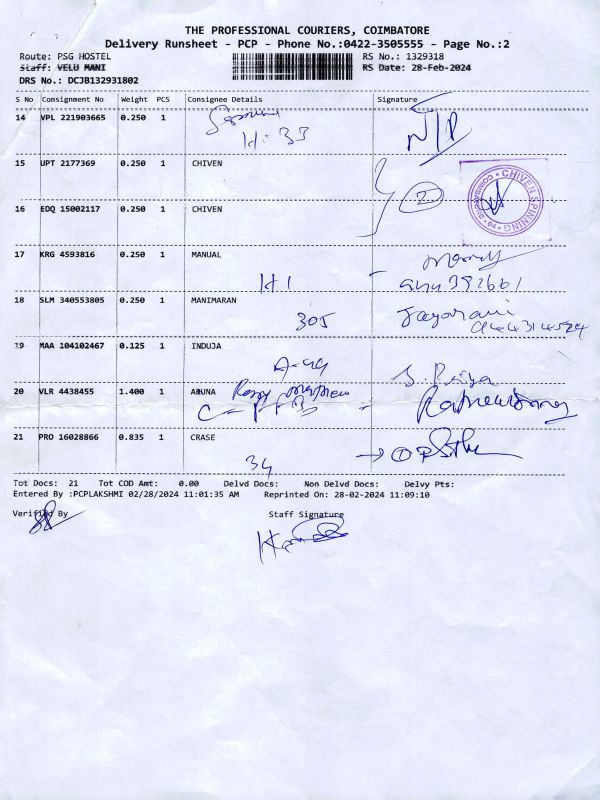 THE PROFESSIONAL COURIERS, COIMBATORE
Delivery Runsheet - PCP - Phone No.:0422-3505555 - Page No.:2
Route: PSG HOSTEL RS No.: 1329318
Staff: VELU MANI RS Date: 28-Feb-2024
DRS No.: DCJB132931802
S No Consignment No Weight PCS Consignee Details Signature
14 VPL 221903665 0.250 1 N/P
H-33
15 UPT 2177369 0.250 1 CHIVEN
2
CHIVEN SPINNING
16 EDQ 15002117 0.250 1 CHIVEN
17 KRG 4593816 0.250 1 MANUAL
H1
18 SLM 340553805 0.250 1 MANIMARAN
305
19 MAA 104102467 0.125 1 INDUJA
20 VLR 4438455 1.400 1 ARUNA
21 PRO 16028866 0.835 1 CRASE
34
Tot Docs: 21 Tot COD Amt: 0.00 Delvd Docs: Non Delvd Docs: Delvy Pts:
Entered By :PCPLAKSHMI 02/28/2024 11:01:35 AM Reprinted On: 28-02-2024 11:09:10
Verified By Staff Signature